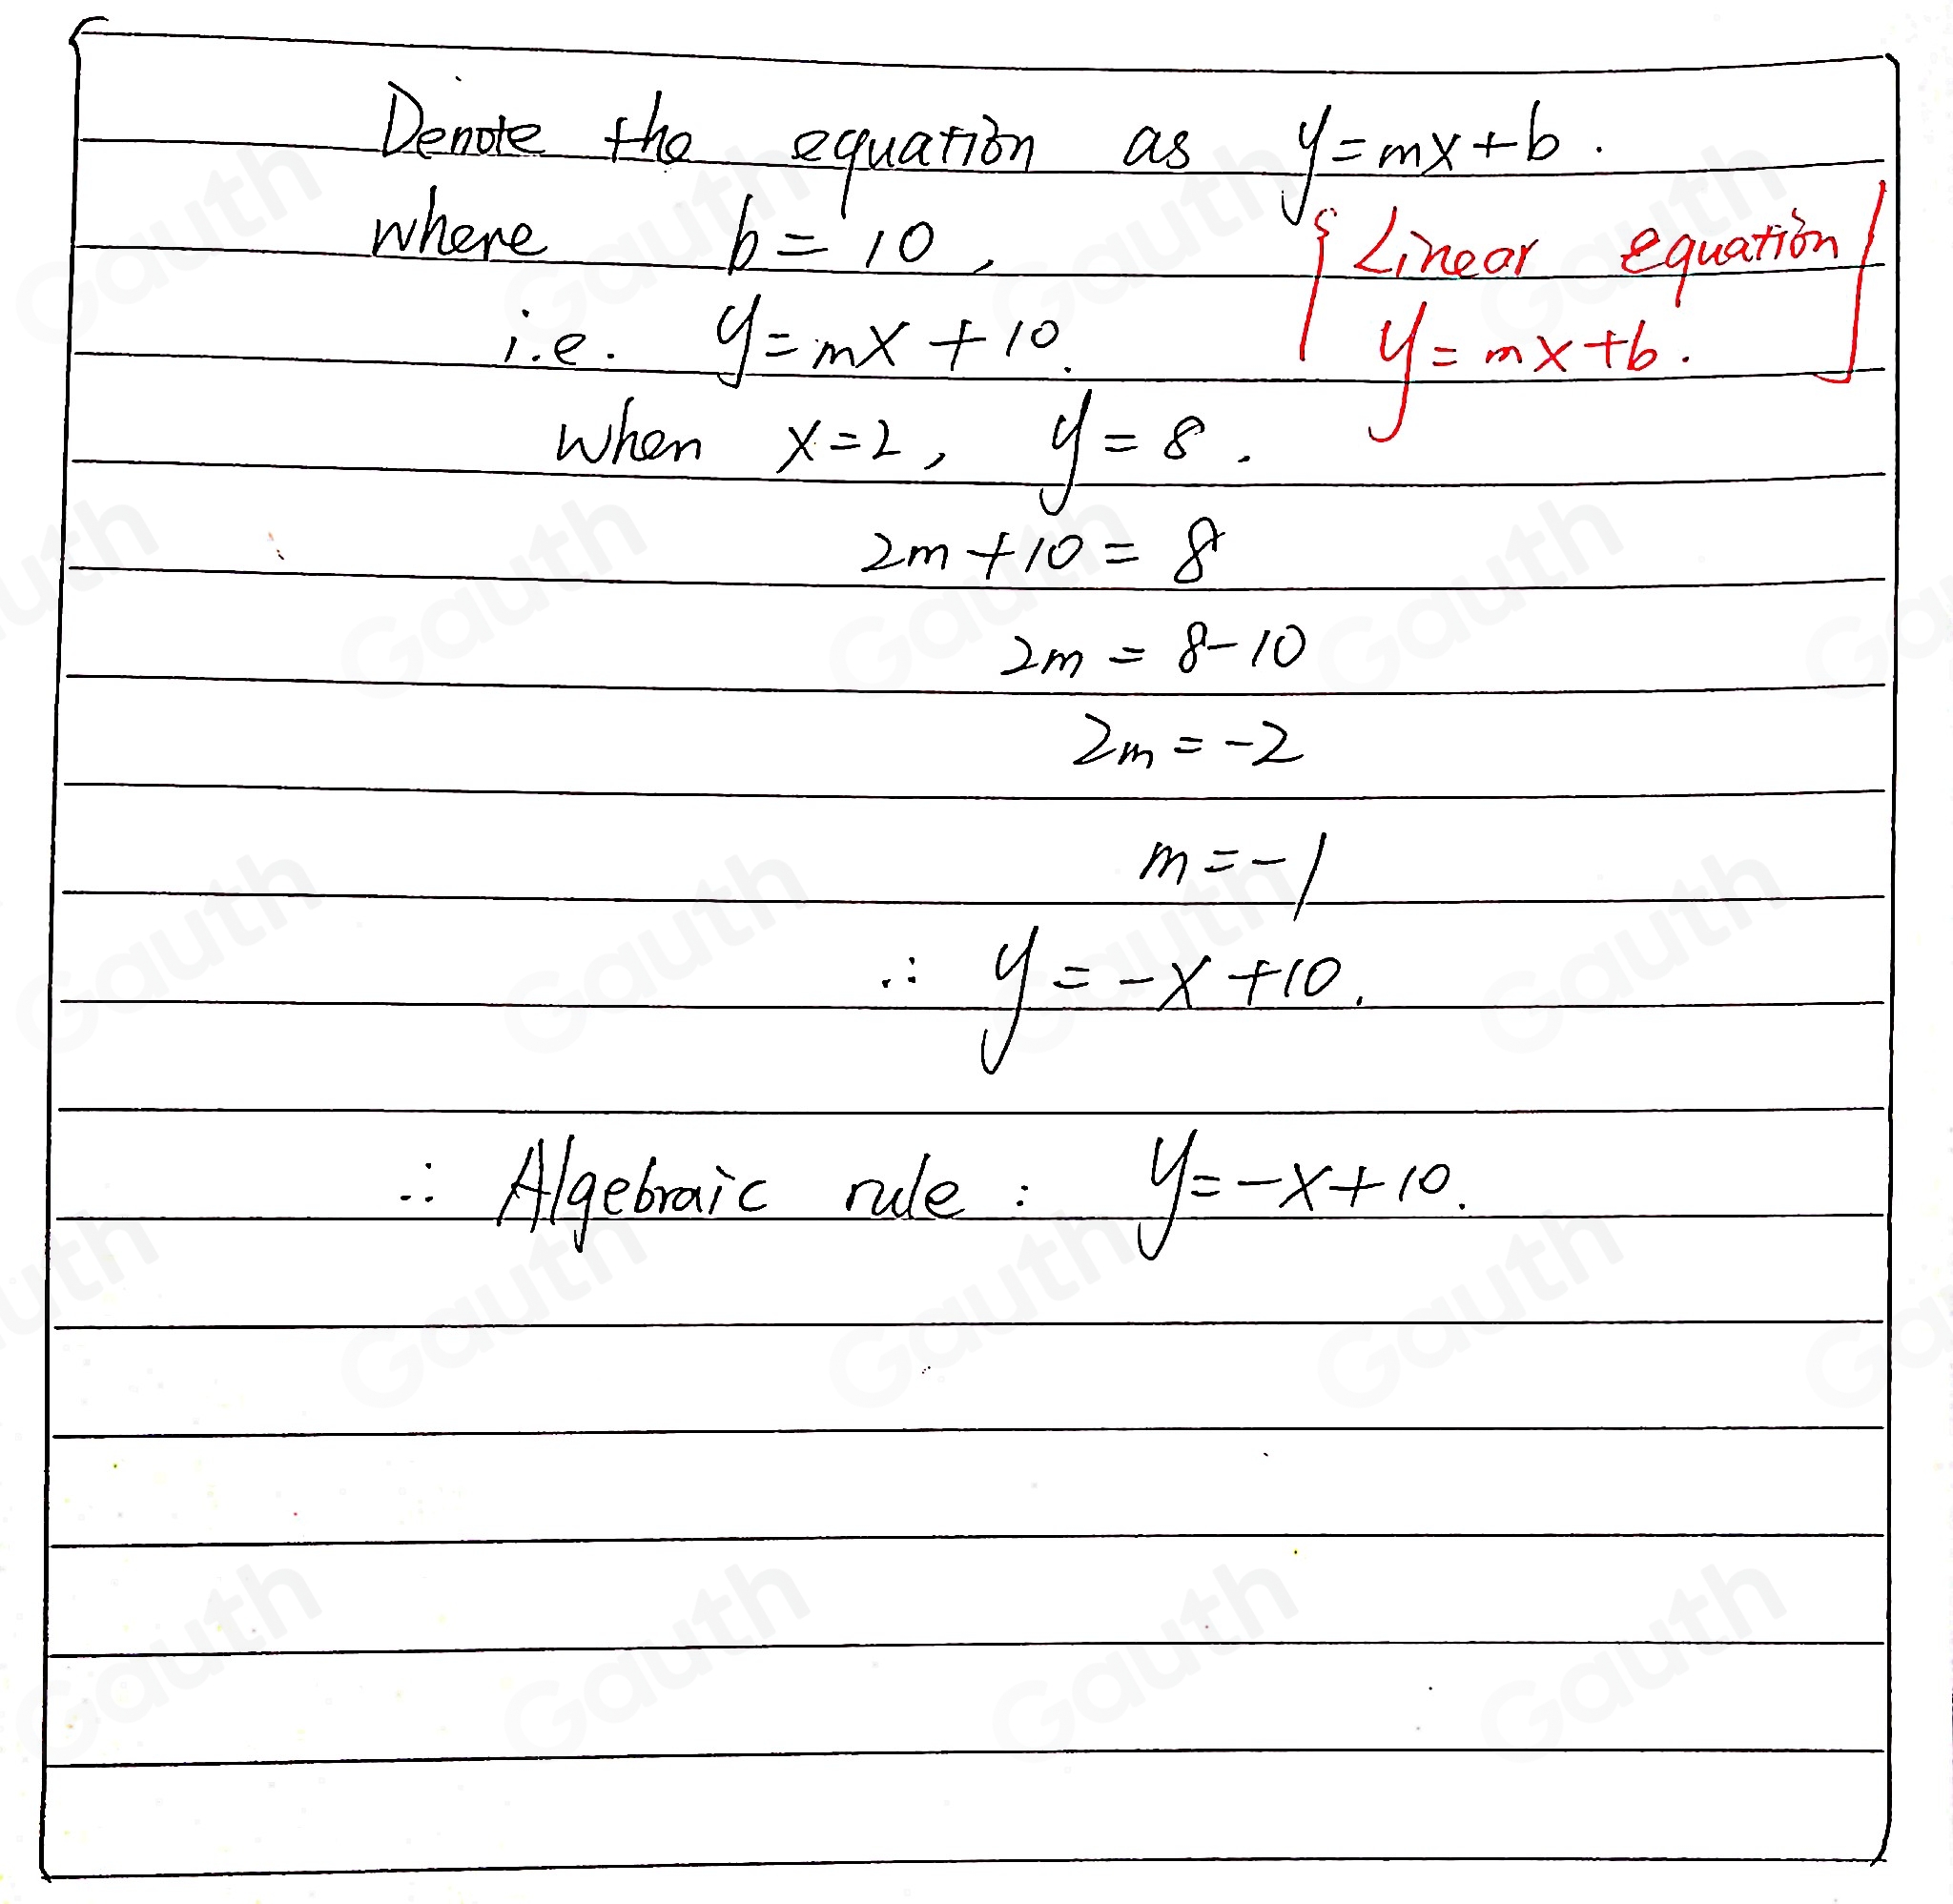 Denote the equation as y=mx+b.
where b=10,
{Linear equation
i.e. y=mx+10.
y=mx+b.
when x=2, y=8.
2m+10=8
2m=8-10
2m=-2
m=-1
∴ y=-x+10.
∴ Algebraic rule: y=-x+10.
Gauth